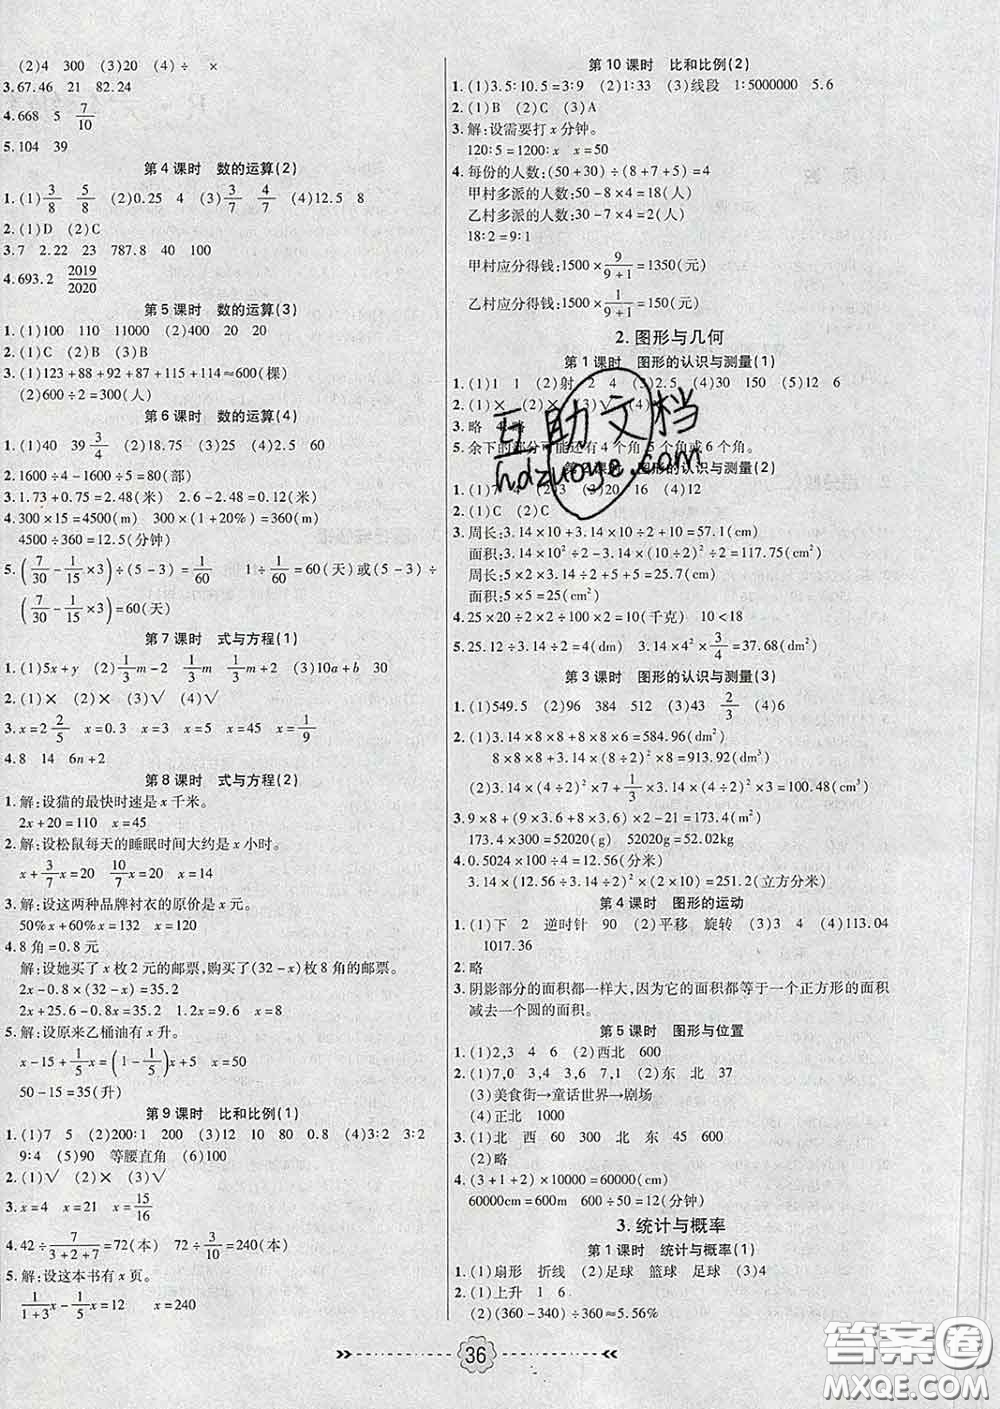 (2)4 300 (3)20 (4)÷ ×
3.67.46 21 82.24
4.668 5 7/10
5.104 39
第4课时 数的运算(2)
1.(1)3/8 5/8 (2)0.25 4 (3)3/7 4/7 (4)12.5 8
2.(1)D (2)C
3.7 2.22 23 787.8 40 100
4.693.2 2019/2020
第5课时 数的运算(3)
1.(1)100 110 11000 (2)400 20 20
2.(1)C (2)C
3.(1)123+88+92+87+115+114≈600(棵)
(2)600÷2=300(人)
第6课时 数的运算(4)
1.(1)40 39 3/4 (2)18.75 (3)25 (4)25
2.1600÷4-1600÷5=80(部)
3.1.73+0.75=2.48(米) 2.6-2.48=0.12(米)
4.300×15=4500(m) 300×(1+20%)=360(m)
4500÷360=12.5(分钟)
5.(7/30-1/15×3)÷(5-3)=1/60 1÷1/60=60(天)或(5-3)÷
(7/30-1/15×3)=60(天)
第7课时 式与方程(1)
1.(1)5x+y (2)1/3m-2 1/3m 1/3m+2 (3)10a+b 30
2.(1)× (2)× (3)√ (4)√
3.x=2 2/5 x=0.3 x=3 x=5 x=45 x=1/9
4.8 14 6n+2
第8课时 式与方程(2)
1.解:设猫的最快时速是x千米。
2x+20=110 x=45
2.解:设松鼠每天的睡眠时间大约是x小时。
x+3/7x=20 10/7x=20 x=14
3.解:设这两种品牌衬衣的原价是x元。
50%x+60%x=132 x=120
4.8角=0.8元
解:设她买了x枚2元的邮票,购买了(32-x)枚8角的邮票。
2x-0.8×(32-x)=5.6
2x+25.6-0.8x=35.2 1.2x=9.6 x=8
5.解:设原来乙桶油有x升。
x-15+1/5x=(1-1/5)x+5 x=50
50-15=35(升)
第9课时 比和比例(1)
1.(1)7 5 (2)200:1 200 (3)12 10 80 0.8 (4)3:2 3:2
9:4 (5)90 等腰直角 (6)100
2.(1)√ (2)× (3)√
3.x=4 x=21 x=15/16
4.42÷7/(3+2+7)=72(本) 72÷3/10=240(本)
5.解:设这本书有x页。
1/(1+3)x-1/5x=12 x=240
第10课时 比和比例(2)
1.(1)3.5:10.5=3:9 (2)1:33 (3)线段 1:5000000 5.6
2.(1)B (2)C (3)A
3.解:设需要打x分钟。
120:5=1200:x x=50
4.每份的人数:(50+30)÷(8+7+5)=4(人)
甲村多派的人数:50-8×4=18(人)
乙村多派的人数:30-7×4=2(人)
18:2=9:1
甲村应分得钱:1500×9/(9+1)=1350(元)
乙村应分得钱:1500×1/(9+1)=150(元)
2.图形与几何
第1课时 图形的认识与测量(1)
1.(1)1 1 (2)射 2 4 (3)2.5 (4)30 150 (5)12 6
2.(1)× (2)× (3)√ (4)
3.略 4.略
5.余下的部分可能还有4个角、5个角或6个角。
第2课时 图形的认识与测量(2)
1.(1)7 4 (2)3 (3)20 16 (4)12
2.(1)C (2)C
3.周长:3.14×10+3.14×10÷2+10=57.1(cm)
面积:3.14×(10÷2)²+3.14×10²÷2÷2=117.75(cm²)
周长:5×2×3.14÷2+5+5=25.7(cm)
面积:5×5=25(cm²)
4.25×20÷2×2÷100×2=10(千克) 10<18
5.25.12÷3/4÷3.14÷2=4(dm) 3.14×4²×3/4=37.68(dm²)
第3课时 图形的认识与测量(3)
1.(1)549.5 (2)96 384 512 (3)43 2/3 (4)6
2.(1)3.14×8×8+8×8×6=584.96(dm²)
8×8×8+3.14×(8÷2)²×8=913.92(dm³)
(2)3.14×(4÷2)²×7+1/3×3.14×(4÷2)²×3=100.48(cm³)
3.9×8+(9×3.6+8×3.6)×2-21=173.4(m²)
173.4×300=52020(g) 52020g=52.02kg
4.0.5024×100÷4=12.56(分米)
3.14×(12.56÷3.14÷2)²×(2×10)=251.2(立方分米)
第4课时 图形的运动
1.(1)下 2 逆时针 90 (2)平移 旋转 (3)3 4 (4)113.04
1017.36
2.略
3.阴影部分的面积都一样大,因为它的面积都等于一个正方形的面积
减去一个圆的面积。
第5课时 图形与位置
1.(1)2,3 4 6 (2)西北 600
2.(1)7,0 3,4 3,6 7,1 (2)东 北 37
(3)美食街→童话世界→剧场
(4)正北 1000
3.(1)北 西 60 300 北 东 45 600
(2)略
4.(3+1+2)×10000=60000(cm)
60000cm=600m 600÷50=12(分钟)
3.统计与概率
第1课时 统计与概率(1)
1.(1)扇形 折线 (2)足球 篮球 足球 (3)4
2.(1)上升 1 6
(2)(360-340)÷360≈5.56%
36
互助文档
hdzuoye.com
答案圈
MXQE.COM